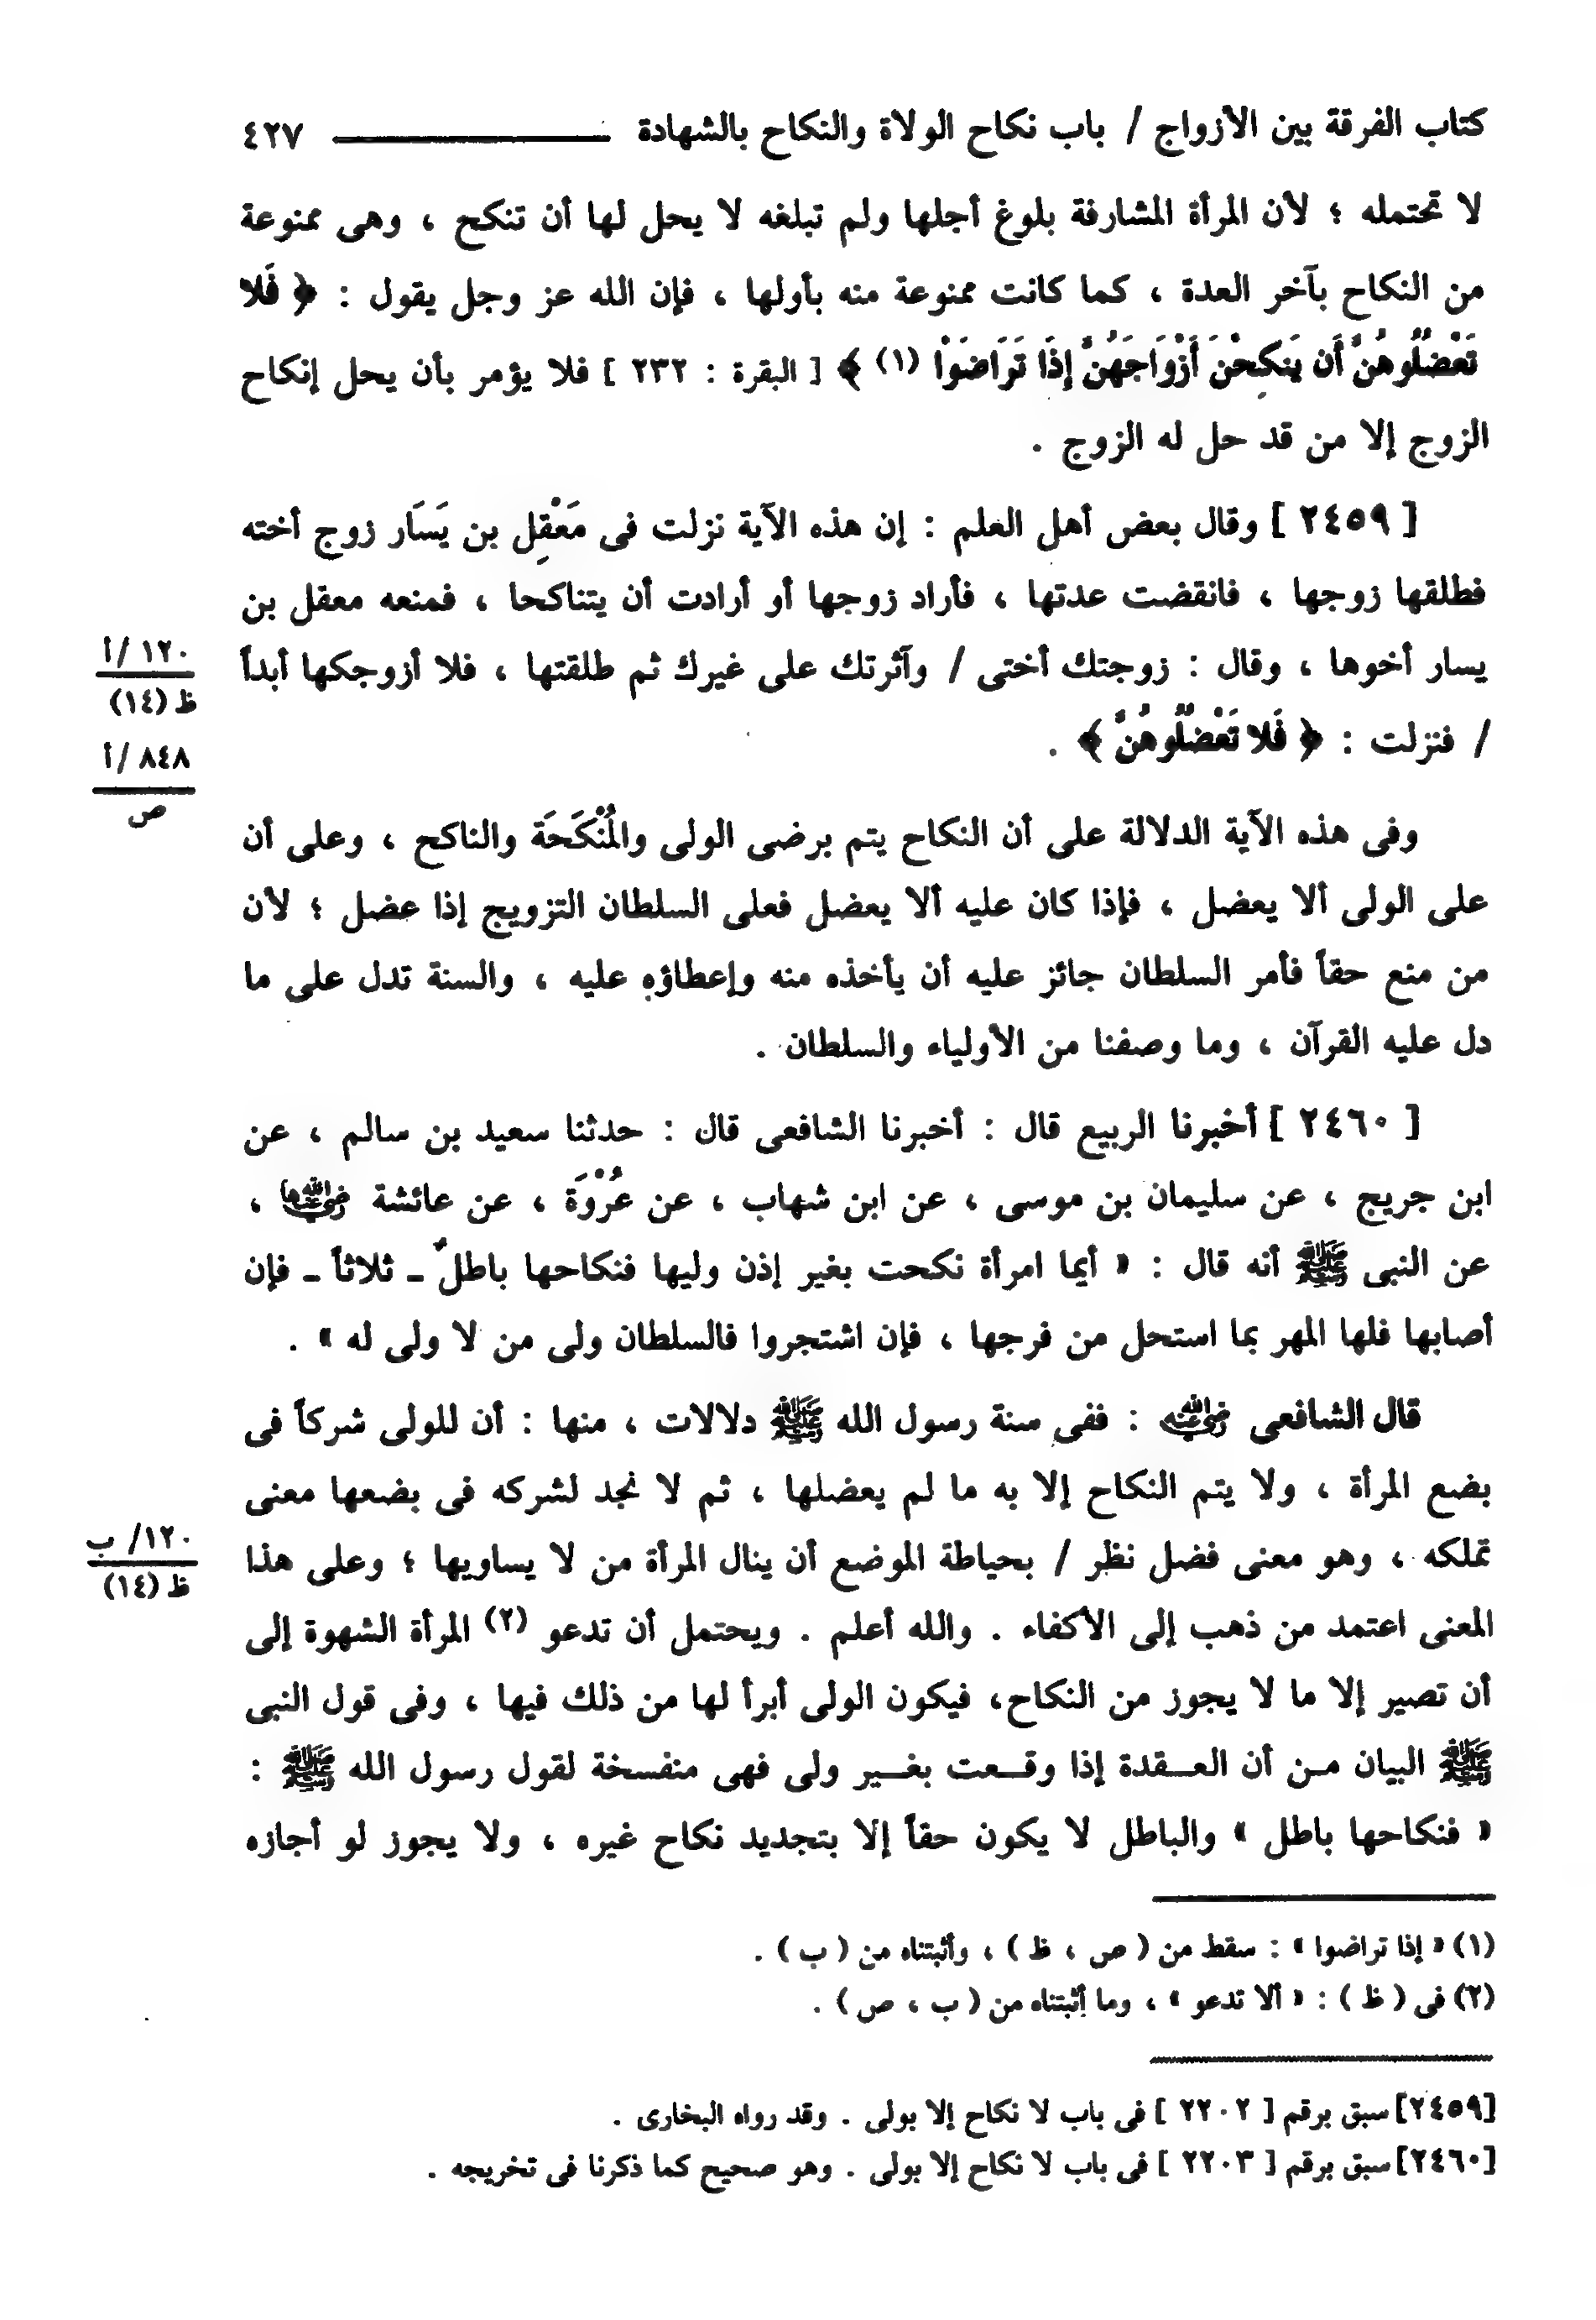 كتاب الفرقة بين الأزواج / باب نكاح الولاة والنكاح بالشهادة ٤٢٧
لا تحتمله ؛ لأن المرأة المشارفة بلوغ أجلها ولم تبلغه لا يحل لها أن تنكح ، وهى ممنوعة
من النكاح بآخر العدة ، كما كانت ممنوعة منه بأولها ، فإن الله عز وجل يقول : ﴿ فَلا
تَعْضُلُوهُنَّ أَن يَنكِحْنَ أَزْوَاجَهُنَّ إِذَا تَرَاضَوْا (١) ﴾ [ البقرة : ٢٣٢ ] فلا يؤمر بأن يحل إنكاح
الزوج إلا من قد حل له الزوج .
[ ٢٤٥٩ ] وقال بعض أهل العلم : إن هذه الآية نزلت فى مَعْقِل بن يَسَار زوج أخته
فطلقها زوجها ، فانقضت عدتها ، فأراد زوجها أو أرادت أن يتناكحا ، فمنعه معقل بن
يسار أخوها ، وقال : زوجتك أختى / وآثرتك على غيرك ثم طلقتها ، فلا أزوجكها أبداً
١٢٠ /أ
ظ (١٤)
/ فنزلت : ﴿ فَلا تَعْضُلُوهُنَّ ﴾ .
٨٤٨ /أ
ص
وفى هذه الآية الدلالة على أن النكاح يتم برضى الولى والمُنْكَحَة والناكح ، وعلى أن
على الولى ألا يعضل ، فإذا كان عليه ألا يعضل فعلى السلطان التزويج إذا عضل ؛ لأن
من منع حقاً فأمر السلطان جائز عليه أن يأخذه منه وإعطاؤه عليه ، والسنة تدل على ما
دل عليه القرآن ، وما وصفنا من الأولياء والسلطان .
[ ٢٤٦٠ ] أخبرنا الربيع قال : أخبرنا الشافعى قال : حدثنا سعيد بن سالم ، عن
ابن جريج ، عن سليمان بن موسى ، عن ابن شهاب ، عن عُرْوَة ، عن عائشة رضي الله عنها ،
عن النبى ﷺ أنه قال : « أيما امرأة نكحت بغير إذن وليها فنكاحها باطلٌ ـ ثلاثاً ـ فإن
أصابها فلها المهر بما استحل من فرجها ، فإن اشتجروا فالسلطان ولى من لا ولى له » .
قال الشافعى رضي الله عنه : ففى سنة رسول الله ﷺ دلالات ، منها : أن للولى شركاً فى
بضع المرأة ، ولا يتم النكاح إلا به ما لم يعضلها ، ثم لا نجد لشركه فى بضعها معنى
تملكه ، وهو معنى فضل نظر / بحياطة الموضع أن ينال المرأة من لا يساويها ؛ وعلى هذا
١٢٠/ ب
ظ (١٤)
المعنى اعتمد من ذهب إلى الأكفاء . والله أعلم . ويحتمل أن تدعو (٢) المرأة الشهوة إلى
أن تصير إلا ما لا يجوز من النكاح، فيكون الولى أبرأ لها من ذلك فيها ، وفى قول النبى
ﷺ البيان من أن العقدة إذا وقعت بغير ولى فهى منفسخة لقول رسول الله ﷺ :
« فنكاحها باطل » والباطل لا يكون حقاً إلا بتجديد نكاح غيره ، ولا يجوز لو أجازه
(١) « إذا تراضوا » : سقط من ( ص ، ظ ) ، وأثبتناه من ( ب ) .
(٢) فى ( ظ ) : « ألا تدعو » ، وما أثبتناه من ( ب ، ص ) .
[٢٤٥٩] سبق برقم [ ٢٢٠٢ ] فى باب لا نكاح إلا بولى . وقد رواه البخارى .
[٢٤٦٠] سبق برقم [ ٢٢٠٣ ] فى باب لا نكاح إلا بولى . وهو صحيح كما ذكرنا فى تخريجه .